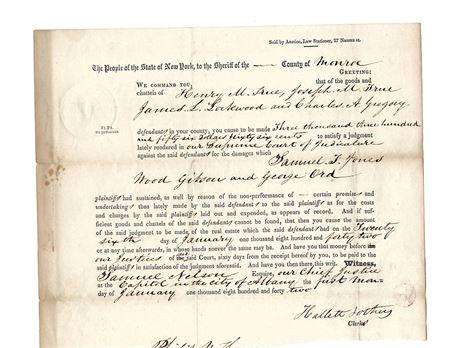 Sold by Amrice, Law Stationer, 27 Nassau st.
The People of the State of New York, to the Sheriff of the —— County of Monroe
GREETING:
WE COMMAND YOU, that of the goods and
chattels of Henry M. True, Joseph M. True
James L. Lockwood and Charles A. Gregory
defendants in your county, you cause to be made Three thousand three hundred
and fifty six dollars sixty six cents to satisfy a judgment
lately rendered in our Supreme Court of Judicature
against the said defendants for the damages which
Samuel T. Jones
Wood Gibson and George Ord
plaintiffs had sustained, as well by reason of the non-performance of — certain promises and
undertakings then lately made by the said defendants to the said plaintiffs as for the costs
and charges by the said plaintiffs laid out and expended, as appears of record. And if suf-
ficient goods and chattels of the said defendants cannot be found, that then you cause the amount
of the said judgment to be made of the real estate which the said defendants had on the Twenty
sixth day of January one thousand eight hundred and forty two
or at any time afterwards, in whose hands soever the same may be. And have you that money before
our Justices of our said Court, sixty days from the receipt hereof by you, to be paid to the
said plaintiffs in satisfaction of the judgment aforesaid. And have you then there, this writ. Witness,
Samuel Nelson Esquire, our Chief Justice
at the Capitol in the city of Albany the first Mon-
day of January one thousand eight hundred and forty two
Hallett &
Clerks